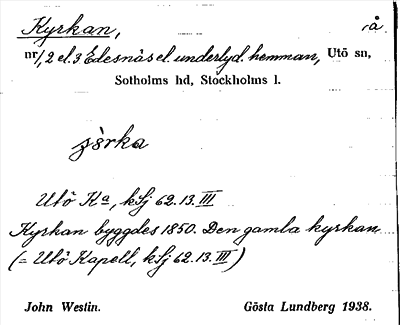 Kyrkan, å
nr 1, 2 el. 3 Edesnäs el. underlyd. hemman, Utö sn,
Sotholms hd, Stockholms l.
Utö Ka, kSj 62.13.III
Kyrkan byggdes 1850. Den gamla kyrkan
(= Utö Kapell, kSj 62.13.III)
John Westin. Gösta Lundberg 1938.